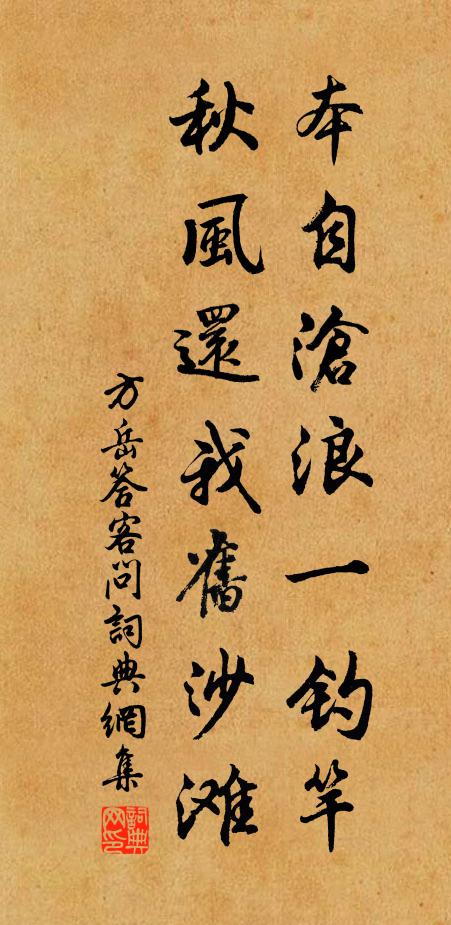 本自滄浪一釣竿
秋風還我舊沙滩
方岳答客問詞典網集
詞典网印